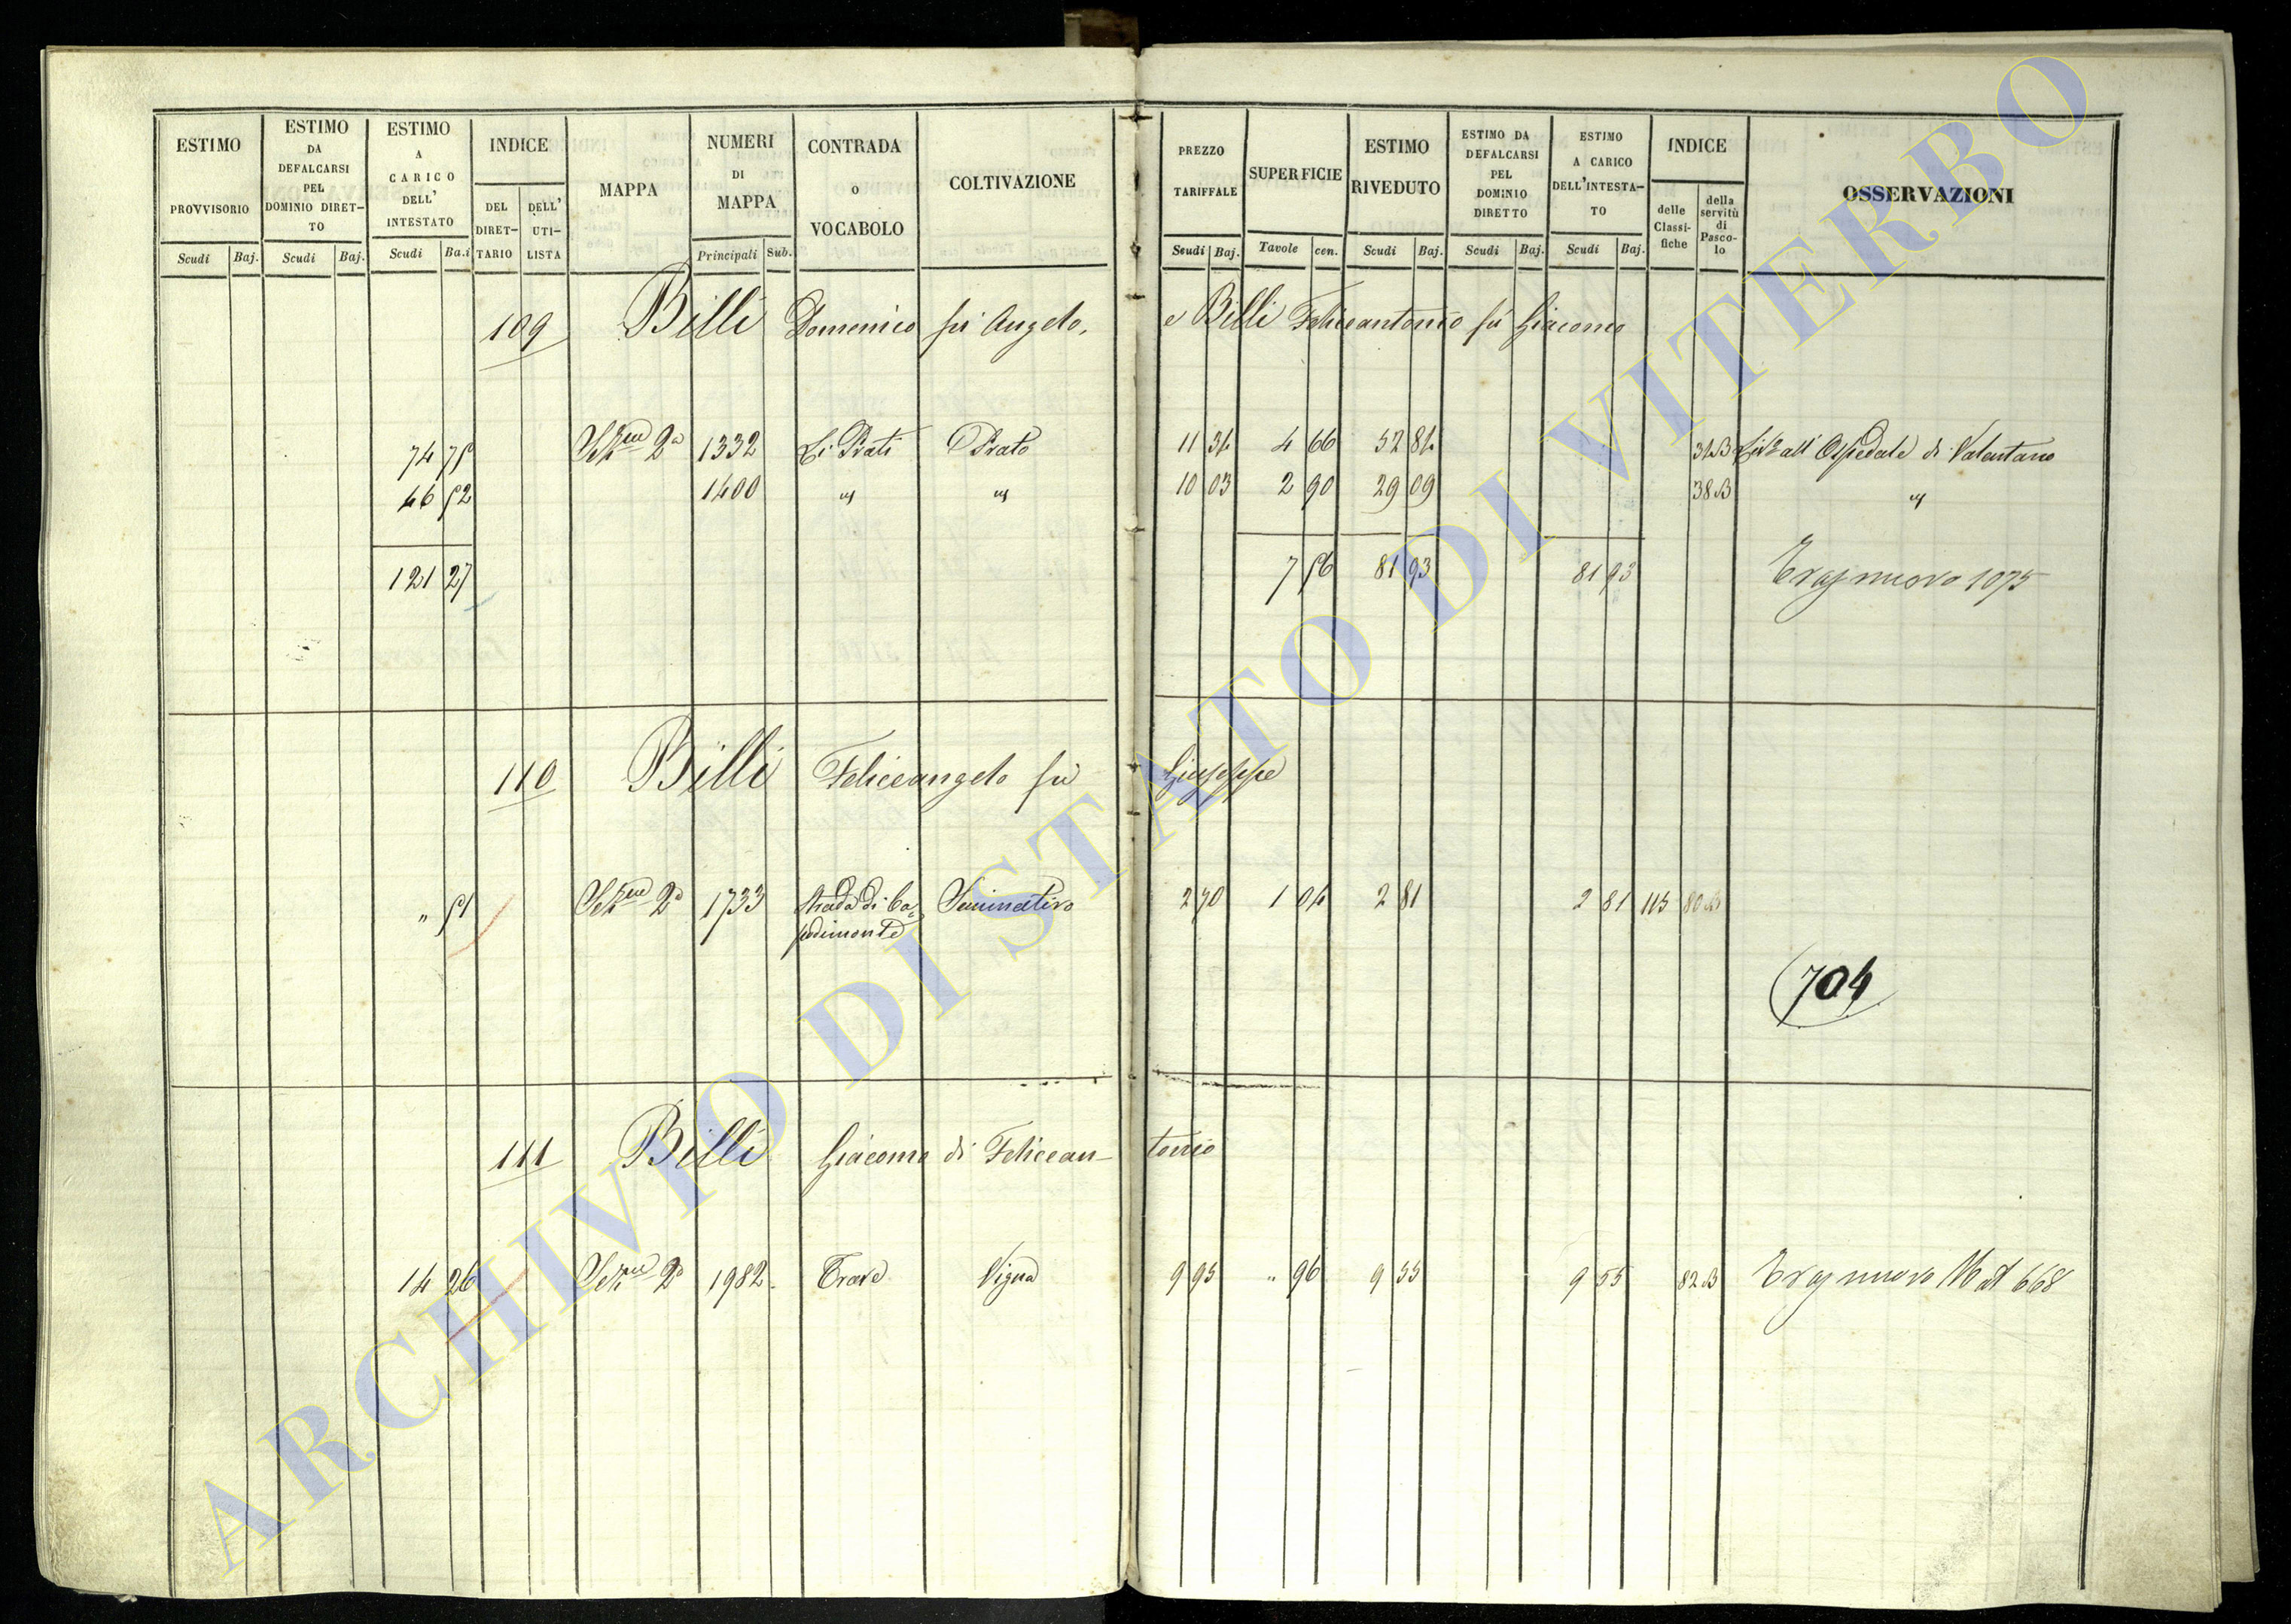 ESTIMO PROVVISORIO Scudi Baj.
ESTIMO DA DEFALCARSI PEL DOMINIO DIRET-TO Scudi Baj.
ESTIMO A CARICO DELL' INTESTATO Scudi Ba.i
INDICE DEL DIRET-TARIO DELL' UTI-LISTA
MAPPA
NUMERI DI MAPPA Principali Sub.
CONTRADA o VOCABOLO
COLTIVAZIONE
PREZZO TARIFFALE Scudi Baj.
SUPERFICIE Tavole cen.
ESTIMO RIVEDUTO Scudi Baj.
ESTIMO DA DEFALCARSI PEL DOMINIO DIRETTO Scudi Baj.
ESTIMO A CARICO DELL'INTESTA-TO Scudi Baj.
INDICE delle Classi-fiche della servitù di Pasco-lo
OSSERVAZIONI
109 Billi Domenico fù Angelo, e Billi Feliceantonio fù Giacomo
74 75 Sez.ne 2a 1332 Li Prati Prato 11 34 4 66 52 84 34B all' Ospedale di Valentano
46 52 1400 " " 10 03 2 90 29 09 38B "
121 27 7 56 81 93 81 93 nuovo 1075
110 Billi Feliceangelo fù Giuseppe
" 51 Sez.ne 2a 1733 Strada di Ca= Seminativo 2 70 1 04 2 81 2 81 115 80B
podimonte
704
111 Billi Giacomo di Felicean-tonio
14 26 Sez.ne 2a 1982 Trave Vigna 9 95 " 96 9 55 9 55 82B nuovo 668
ARCHIVIO DI STATO DI VITERBO